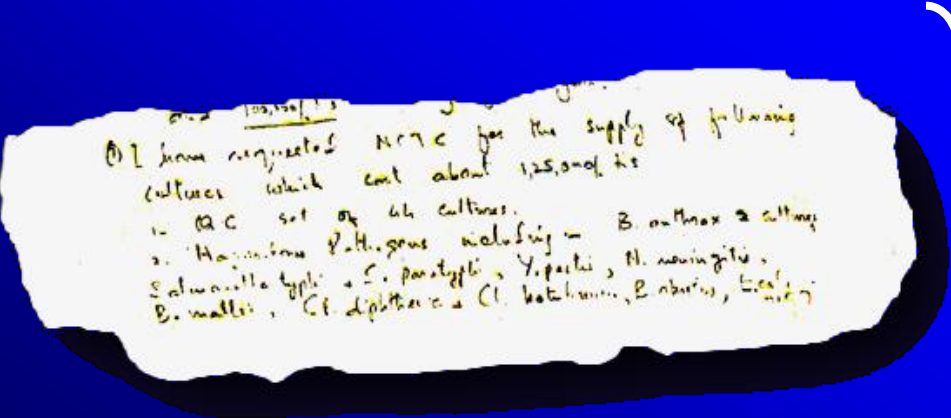 and 100,000/ Rs
① I have requested NCTC for the supply of following
cultures which cost about 1,25,000/ Rs
1. QC set of cultures.
2. Hazardous Pathogens including - B. anthrax 2 cultures
Salmonella typhi, S. paratyphi, Y. pestis, N. meningitis,
B. mallei, C. diphtheriae, Cl. botulinum, B. abortus,